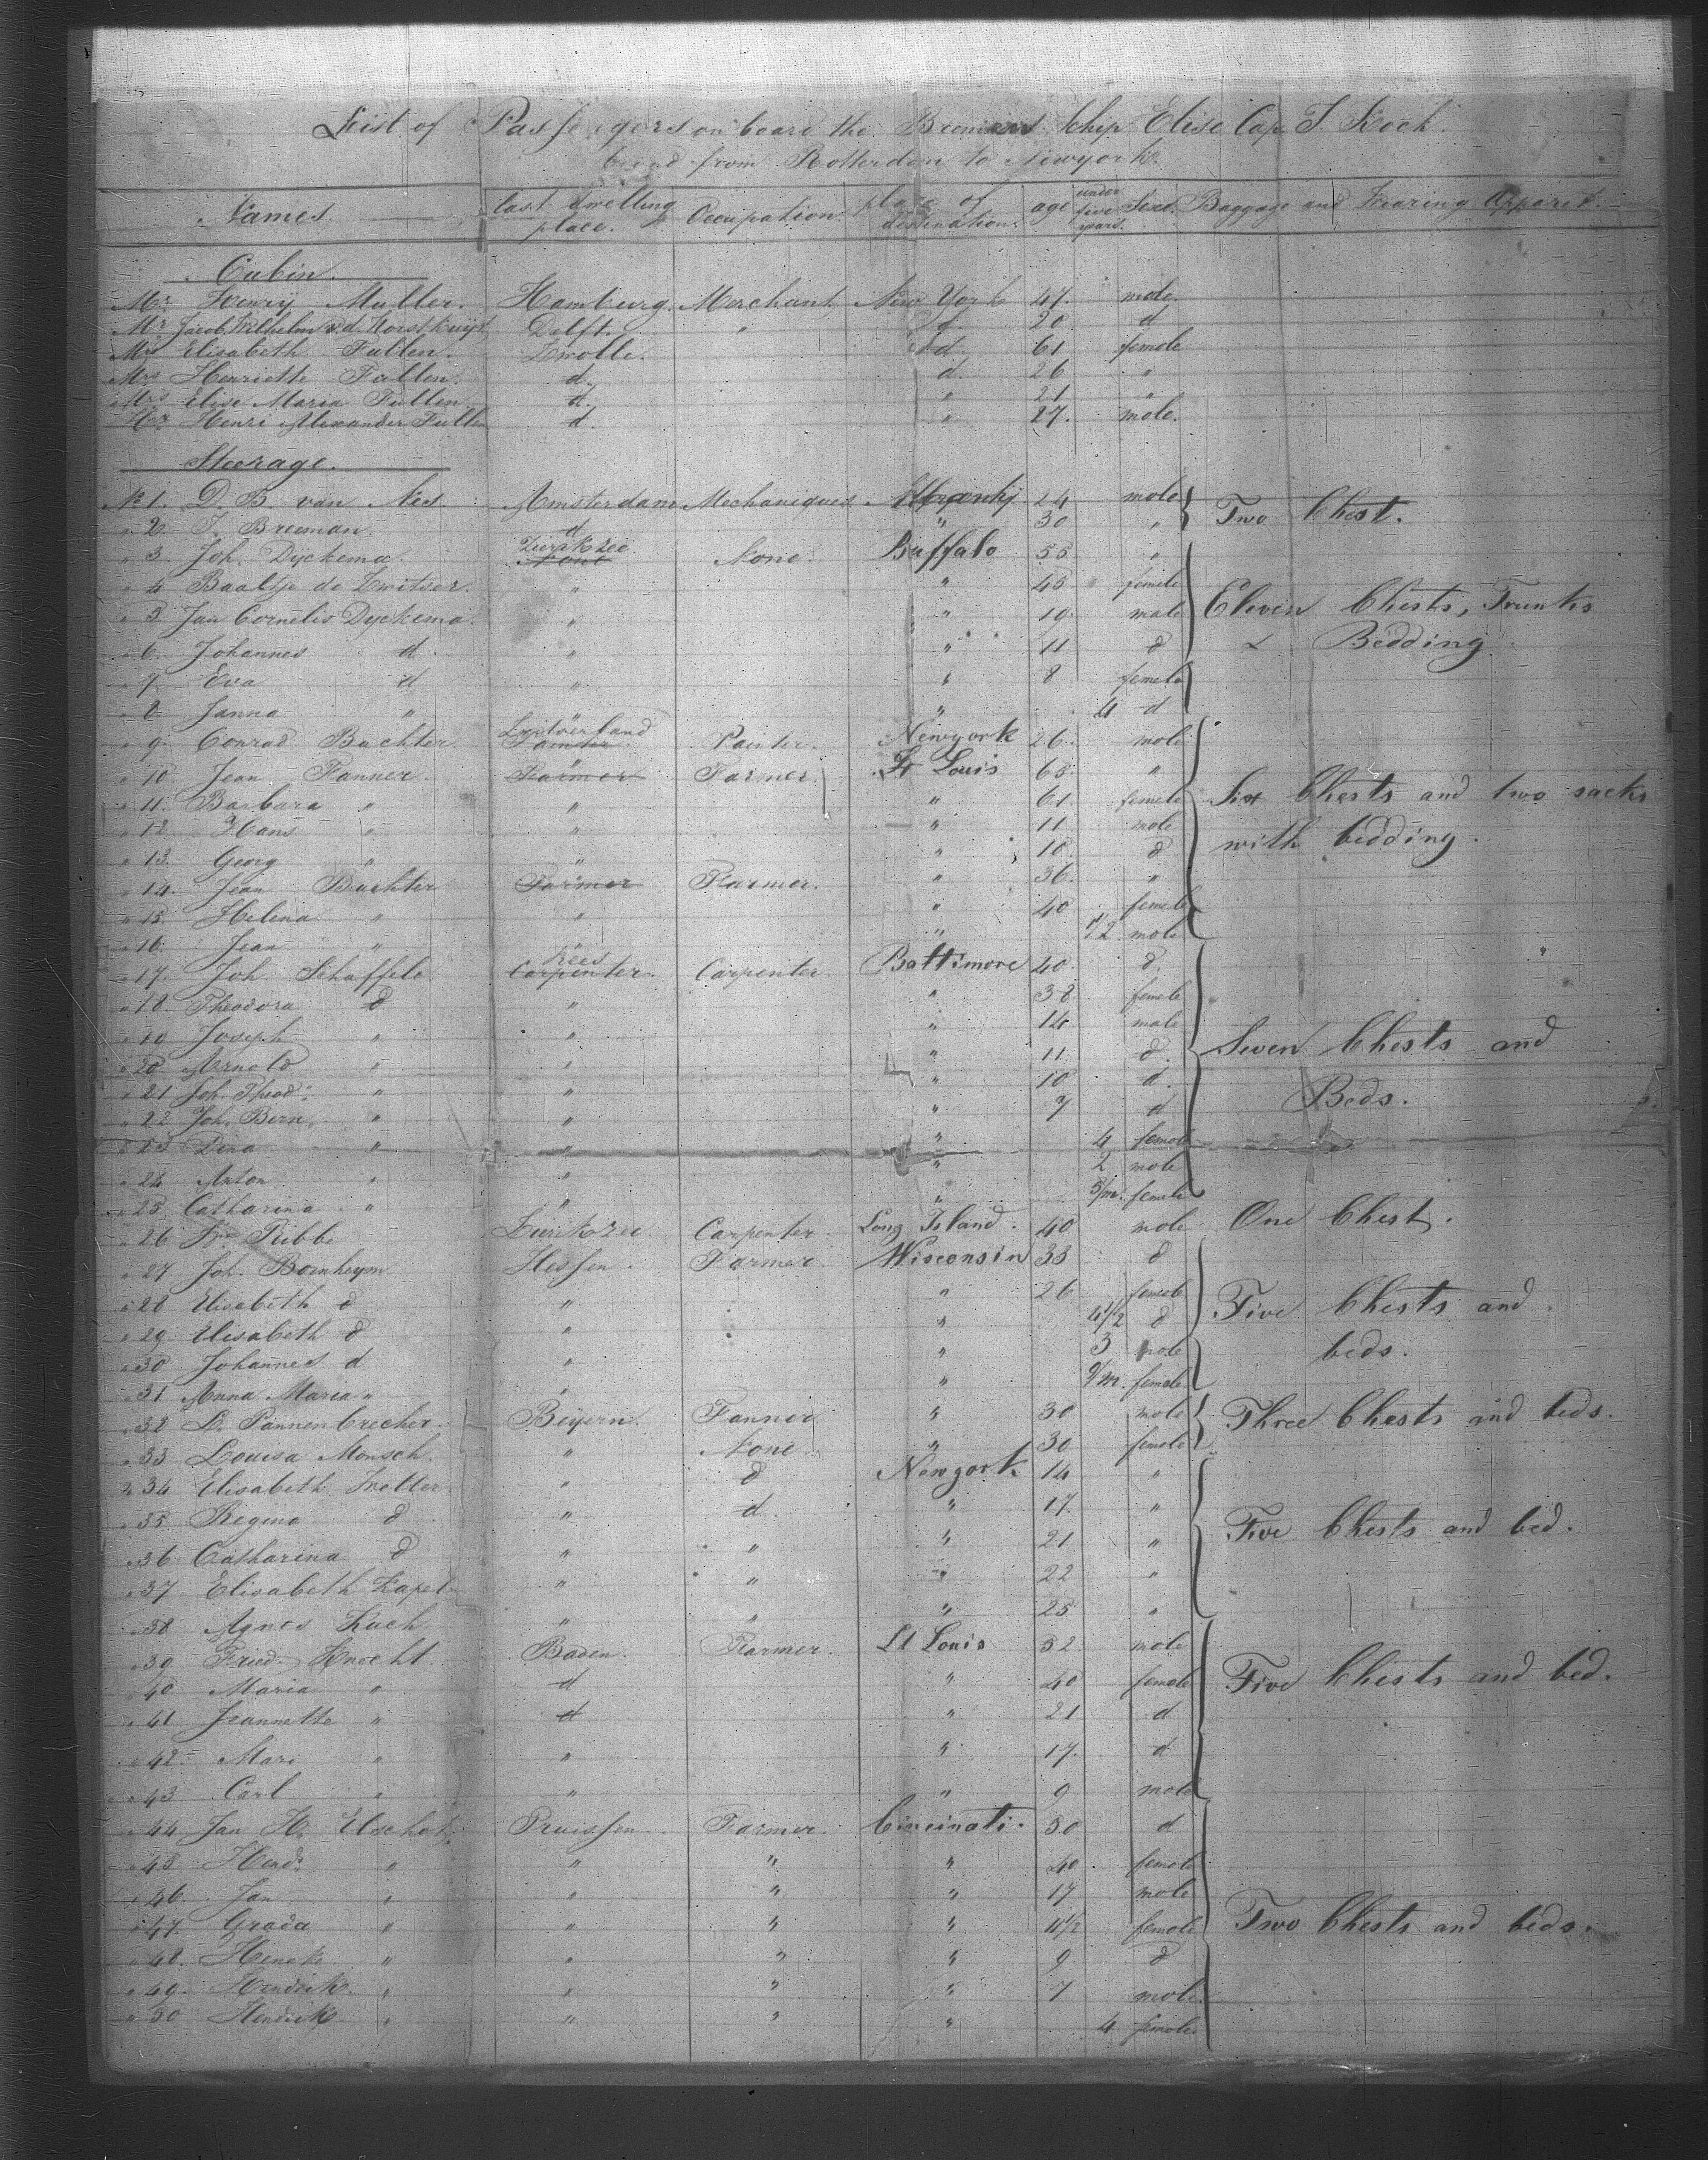 List of Passengers on board the Bremens Schip Elise Cap. J. Kock.
bound from Rotterdam to Newyork.
Names. last dwelling place. Occupation. place of destination. age under five years. Sexe. Baggage and Wearing Apparel.
Cabin.
Mr Henry Muller. Hamburg. Merchant New York 47. male.
Mr Jacob Wilhelm v.d. Horstkuijt Delft. " d. 20 d
Mrs Elisabeth Fullen. Zwolle. d 61 female
Mrs Henriette Fullen. d. d. 26 "
Mrs Elise Maria Fullen d. " 21 "
Mr Henri Alexander Fullen d. " 27. male.
Steerage.
No 1. D. B. van Nes. Amsterdam Mechaniques 24 male Two Chest.
" 2. J. Breeman. d " 30 "
" 3. Joh. Dyckema. Zierikzee None None. Buffalo 55 "
" 4 Baaltje de Zwitser. " " 45 female
" 5 Jan Cornelis Dyckema. " " 19. male Eleven Chests, Trunks
" 6. Johannes d. " " 11 d & Bedding
" 7. Eva d " " 8 female
" 8 Janna " " " 4 d
" 9. Conrad Buchter. Painter Painter. Newyork 26. male
" 10. Jean Fanner. " Farmer Farmer. St Louis 65. "
" 11. Barbara " " " 61. female Six Chests and two sacks
" 12. Hans " " " 11 male with bedding.
" 13. Georg " " " 10. d
" 14. Jean Buchter Farmer Farmer. " 36. "
" 15. Helena " " " 40 female
" 16. Jean " " 1/2 male
" 17. Joh Schaffele Rees Carpenter. Carpenter. Baltimore 40. d.
" 18. Theodora d " " 38 female
" 19 Joseph " " " 14. male
" 20 Arnold " " " 11 d. Seven Chests and
" 21 Joh. Theod: " " " 10 d. Beds.
" 22 Joh. Bern. " " " 7 d
" 23 Dina " " " 4 female
" 24 Anton " " " 2 male
" 25 Catharina " " " 5/m. female
" 26 Ribbe Zierikzee Carpenter Long Island. 40 male One Chest.
" 27 Joh. Bornheym Hessen. Farmer. Wisconsin 33 d
" 28 Elisabeth d " " 26 female Five Chests and
" 29 Elisabeth d " " 4 1/2 d beds.
" 30 Johannes d " " 3 male
" 31 Anna Maria " " " 9/m. female
" 32 D. Pannenbrecher. Beyern. Farmer " 30 male Three Chests and beds.
" 33 Louisa Monsch. " None " 30 female
" 34 Elisabeth Zwetter " d Newyork 14 "
" 35 Regina d " d. " 17. "
" 36 Catharina d " " " 21 " Five Chests and bed.
" 37 Elisabeth Kapel " " " 22 "
" 38 Agnes Kuch " " " 25 "
" 39 Fried. Knecht Baden. Farmer. St Louis 52 male
" 40 Maria " d " 40 female Five Chests and bed.
" 41 Jeannette " d " 21 d
" 42. Mari " " " 17. d
" 43 Carl " " " 9 male
" 44 Jan H. Elschot. Pruissen. Farmer. Cincinati. 50 d
" 45 Hend: " " " " 40 female
" 46. Jan " " " " 17 male
" 47. Grada " " " " 11 1/2 female Two Chests and beds.
" 48. " " " " 9 d
" 49. Hendrik. " " " " 7 male
" 50 Hendrik " " " " 4 female.